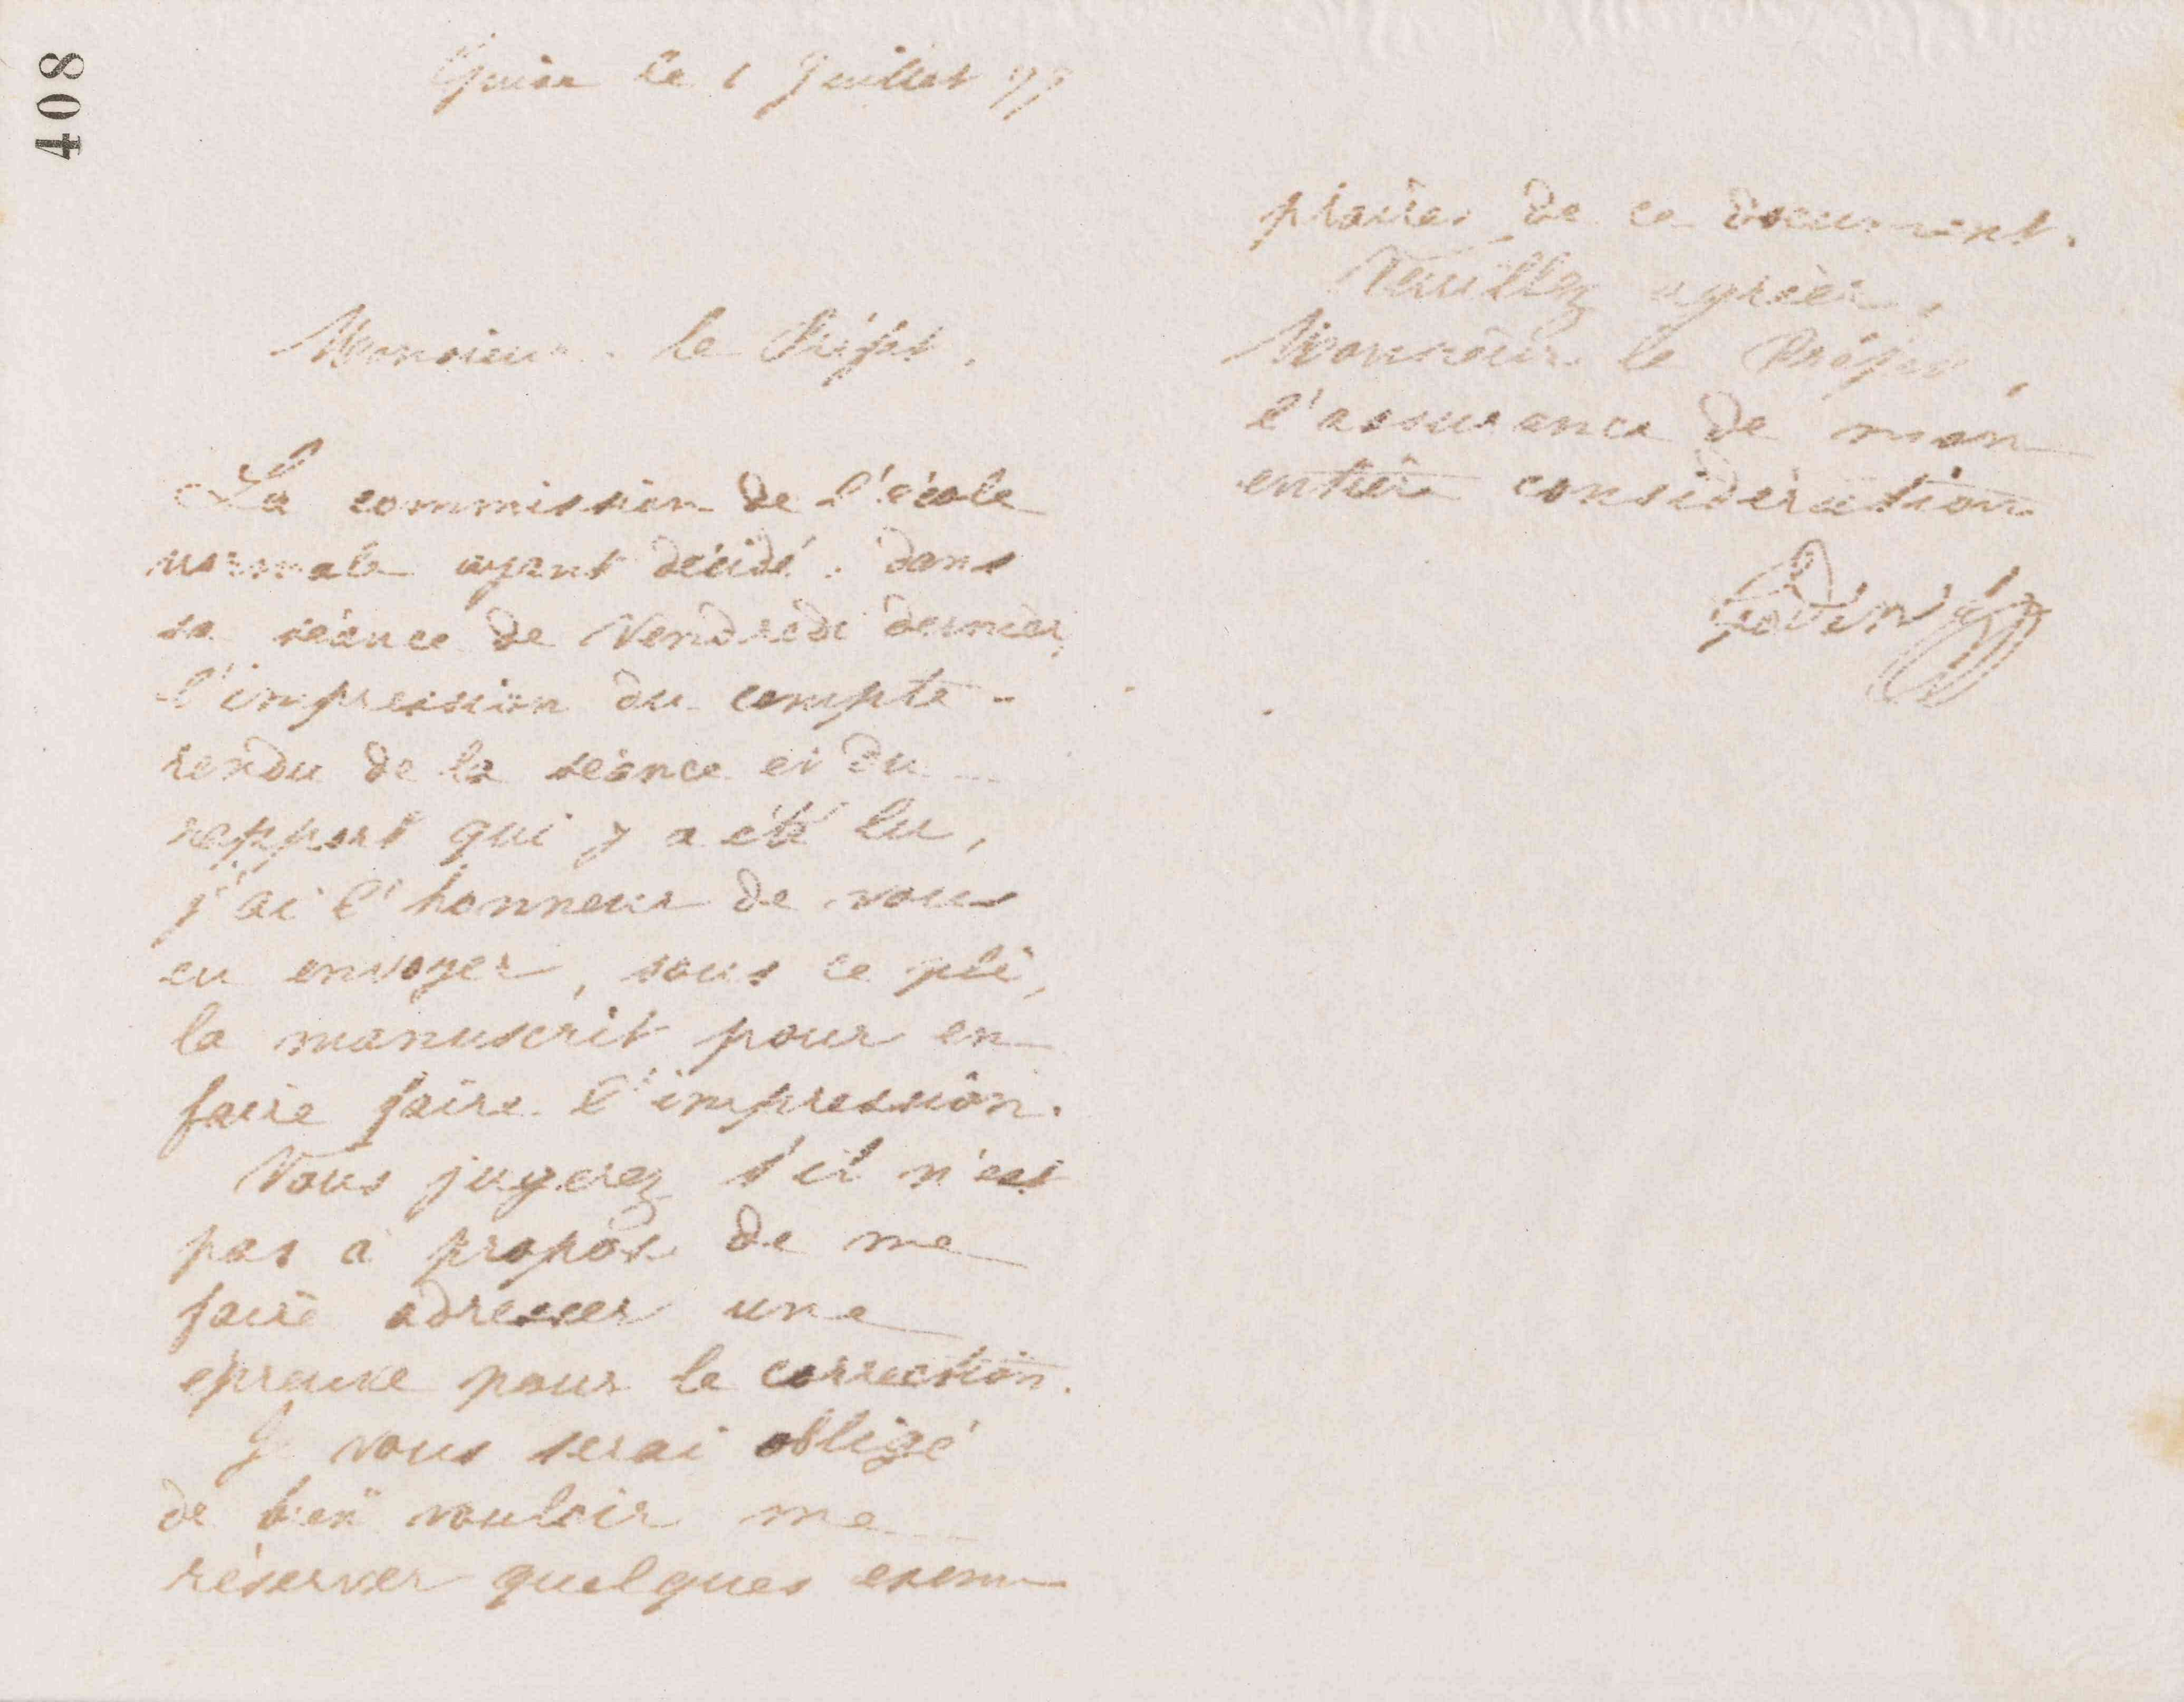 408
Guise le 1 Juillet 77
Monsieur le Préfet,
La commission de l'école
normale ayant décidé, dans
sa séance de Vendredi dernier,
l'impression du compte-
rendu de la séance et du
rapport qui y a été lu,
j'ai l'honneur de vous
en envoyer, sous ce pli,
le manuscrit pour en
faire faire l'impression.
Vous jugerez s'il n'est
pas à propos de me
faire adresser une
épreuve pour la correction.
Je vous serai obligé
de bien vouloir me
réserver quelques exem
plaires de ce document.
Veuillez agréer,
Monsieur le Préfet,
l'assurance de mon
entière considération
Godin